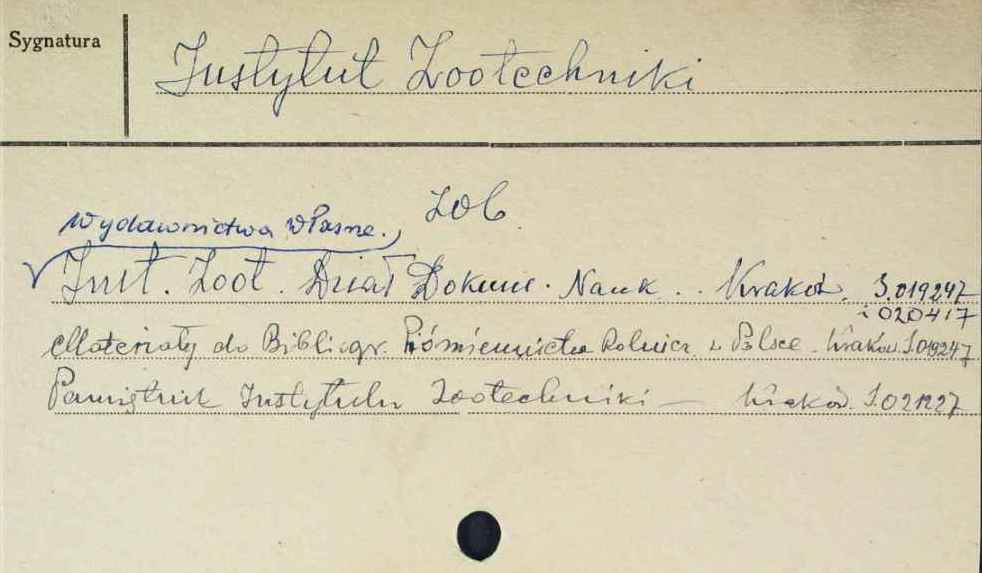 Sygnatura
Instytut Zootechniki
Zob
Wydawnictwa Własne.,
Inst. Zoot. Dział Dokum. Nauk. . Kraków. S.019247
i 020417
Materiały do Bibliogr. Piśmiennictwa Rolnicz. w Polsce. Kraków S.019247
Pamiętnik Instytutu Zootechniki — Kraków. S.021227